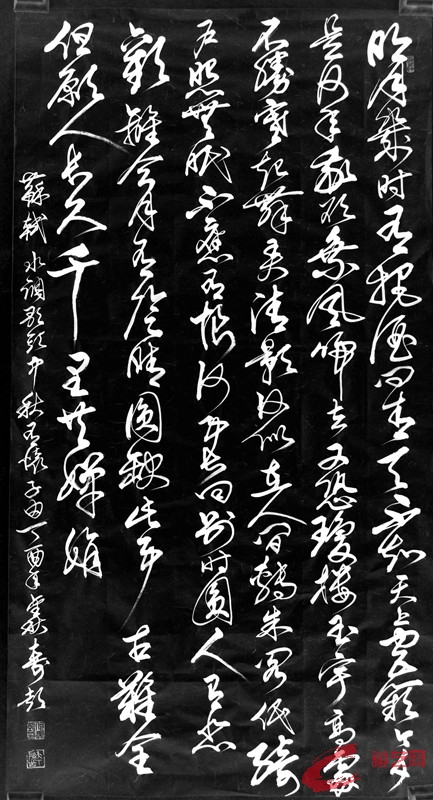 明月幾时有把酒问青天不知天上宫阙今夕
是何年我欲乘風归去又恐瓊楼玉宇高處
不勝寒起舞弄清影何似在人间轉朱阁低绮
户照無眠不應有恨何事长向别时圓人有悲
歡離合月有陰晴圓缺此事古難全
但願人长久千里共嬋娟
蘇軾水调歌頭中秋有懷子由丁酉年寿彭